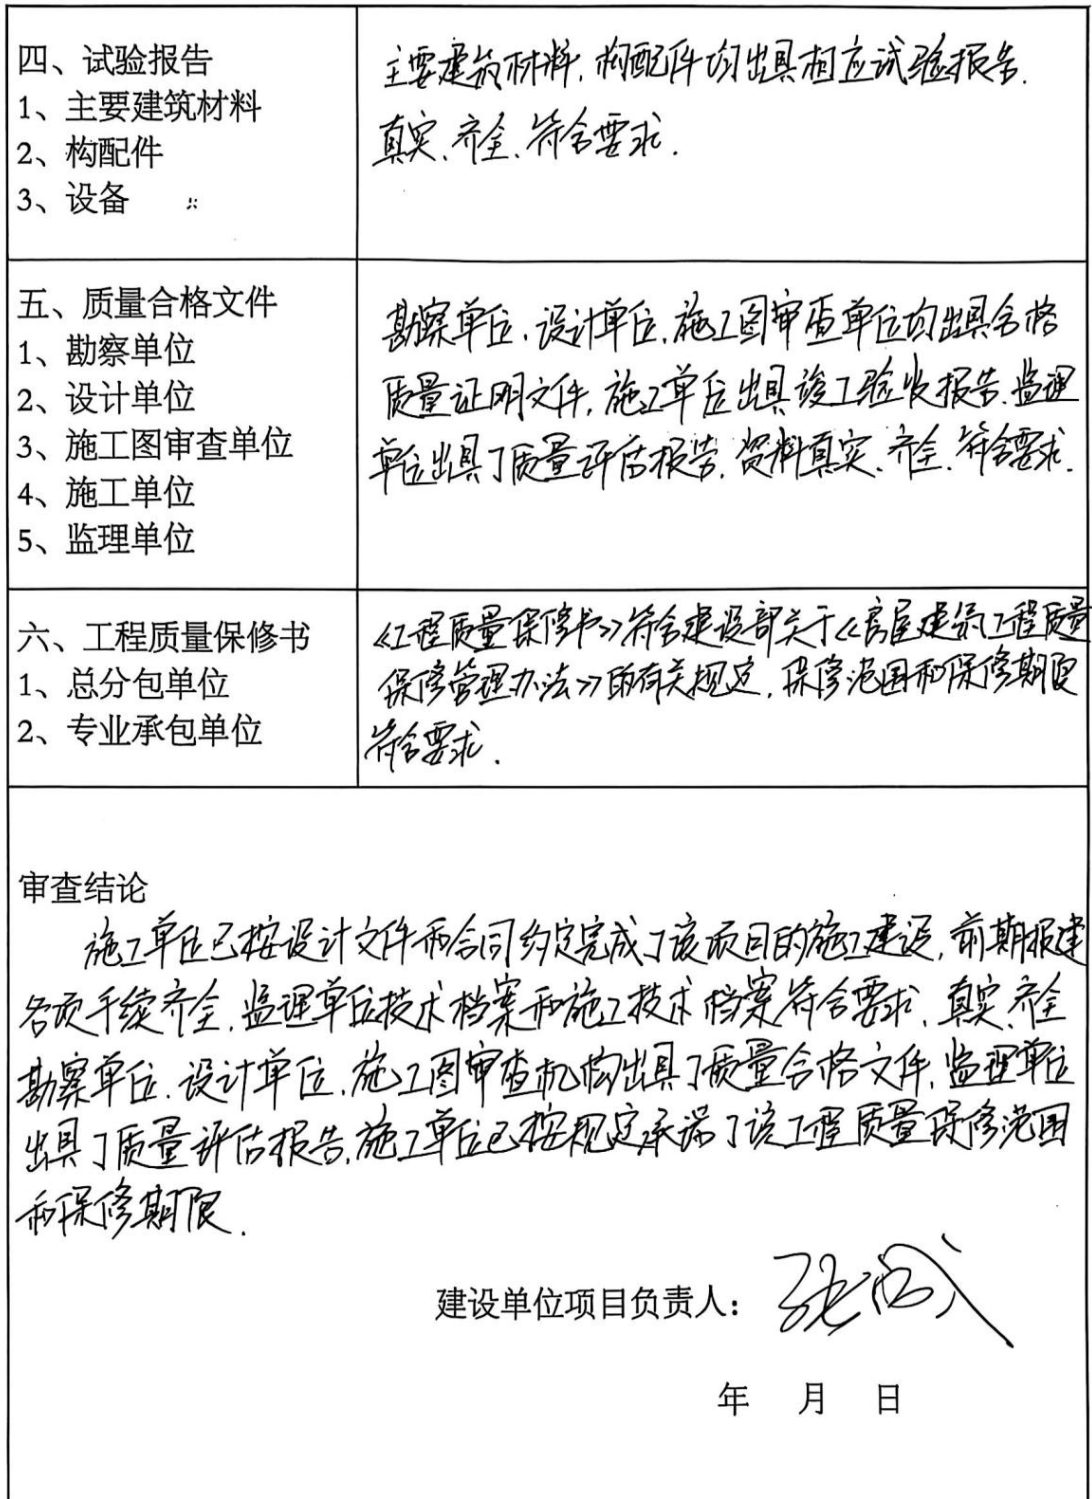 四、试验报告
1、主要建筑材料
2、构配件
3、设备
主要建筑材料,构配件均出具相应试验报告.
真实、齐全、符合要求.
五、质量合格文件
1、勘察单位
2、设计单位
3、施工图审查单位
4、施工单位
5、监理单位
勘察单位、设计单位、施工图审查单位均出具合格
质量证明文件,施工单位出具竣工验收报告,监理
单位出具了质量评估报告,资料真实、齐全、符合要求.
六、工程质量保修书
1、总分包单位
2、专业承包单位
《工程质量保修书》符合建设部关于《房屋建筑工程质量
保修管理办法》的有关规定,保修范围和保修期限
符合要求.
审查结论
施工单位已按设计文件和合同约定完成了该项目的施工建设,前期报建
各项手续齐全,监理单位技术档案和施工技术档案符合要求、真实、齐全
勘察单位、设计单位、施工图审查机构出具了质量合格文件,监理单位
出具了质量评估报告,施工单位已按规定承诺了该工程质量保修范围
和保修期限.
建设单位项目负责人:
年 月 日